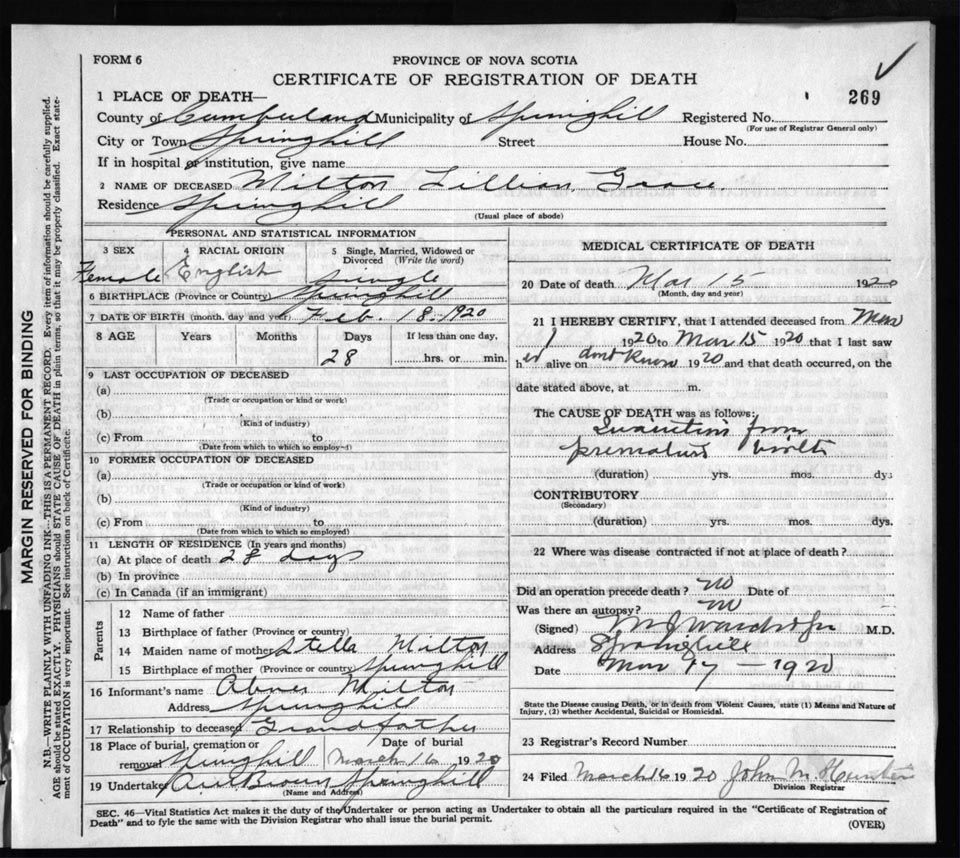 FORM 6
PROVINCE OF NOVA SCOTIA
CERTIFICATE OF REGISTRATION OF DEATH
269
1 PLACE OF DEATH—
County of Cumberland Municipality of Springhill Registered No.
(For use of Registrar General only)
City or Town Springhill Street House No.
If in hospital or institution, give name
2 NAME OF DECEASED Milton Lillian Grace
Residence Springhill
(Usual place of abode)
PERSONAL AND STATISTICAL INFORMATION
3 SEX 4 RACIAL ORIGIN 5 Single, Married, Widowed or
Divorced (Write the word)
Female English single
6 BIRTHPLACE (Province or Country) Springhill
7 DATE OF BIRTH (month, day and year) Feb. 18. 1920
8 AGE Years Months Days If less than one day,
28 hrs. or min.
9 LAST OCCUPATION OF DECEASED
(a)
(Trade or occupation or kind or work)
(b)
(Kind of industry)
(c) From to
(Date from which to which so employed)
10 FORMER OCCUPATION OF DECEASED
(a)
(Trade or occupation or kind of work)
(b)
(Kind of industry)
(c) From to
(Date from which to which so employed)
11 LENGTH OF RESIDENCE (In years and months)
(a) At place of death 28 days
(b) In province
(c) In Canada (if an immigrant)
Parents
12 Name of father
13 Birthplace of father (Province or country)
14 Maiden name of mother Stella Milton
15 Birthplace of mother (Province or country) Springhill
16 Informant's name Abner Milton
Address Springhill
17 Relationship to deceased Grandfather
18 Place of burial, cremation or Date of burial
removal Springhill March 16 1920
19 Undertaker Brown Springhill
(Name and Address)
MEDICAL CERTIFICATE OF DEATH
20 Date of death Mar 15 1920
(Month, day and year)
21 I HEREBY CERTIFY, that I attended deceased from Mar
1 1920 to Mar 15 1920 that I last saw
her alive on dont know 1920 and that death occurred, on the
date stated above, at m.
The CAUSE OF DEATH was as follows:
Inanition from
premature birth
(duration) yrs. mos. dys
CONTRIBUTORY
(Secondary)
(duration) yrs. mos. dys.
22 Where was disease contracted if not at place of death?
Did an operation precede death? no Date of
Was there an autopsy? no
(Signed) M D.
Address Springhill
Date Mar 17 — 1920
State the Disease causing Death, or in death from Violent Causes, state (1) Means and Nature of
Injury, (2) whether Accidental, Suicidal or Homicidal.
23 Registrar's Record Number
24 Filed March 16 1920 John M. Hunter
Division Registrar
SEC. 46—Vital Statistics Act makes it the duty of the Undertaker or person acting as Undertaker to obtain all the particulars required in the "Certificate of Registration of
Death" and to fyle the same with the Division Registrar who shall issue the burial permit.
(OVER)
MARGIN RESERVED FOR BINDING
N.B.—WRITE PLAINLY WITH UNFADING INK—THIS IS A PERMANENT RECORD. Every item of information should be carefully supplied.
AGE should be stated EXACTLY. PHYSICIANS should STATE CAUSE OF DEATH in plain terms, so that it may be properly classified. Exact state-
ment of OCCUPATION is very important. See instructions on back of Certificate.